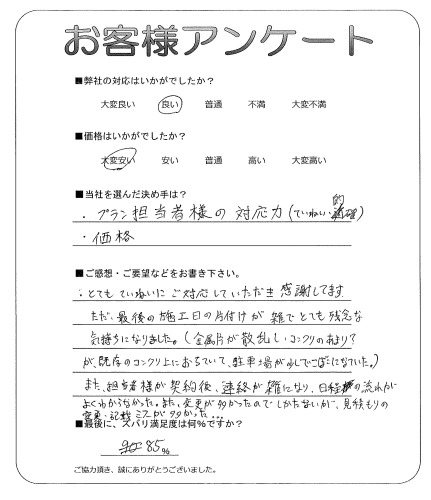 お客様アンケート
■弊社の対応はいかがでしたか？
大変良い 良い 普通 不満 大変不満
■価格はいかがでしたか？
大変安い 安い 普通 高い 大変高い
■当社を選んだ決め手は？
・プラン担当者様の対応力(ていねい・的確)
・価格
■ご感想・ご要望などをお書き下さい。
・とてもていねいにご対応していただき感謝してます
ただ、最後の施工日の片付けが雑でとても残念な
気持ちになりました。(金属片が散乱し・コンクリのあまり?
が、既存のコンクリ上におちていて、駐車場が少しでこぼこになていた。)
また、担当者様が契約後、連絡が雑になり、日程の流れが
よくわからなかった。また、変更が多かったのでしかたないが、見積もりの
変更・記載ミスが多かった…
■最後に、ズバリ満足度は何％ですか？
85％
ご協力頂き、誠にありがとうございました。